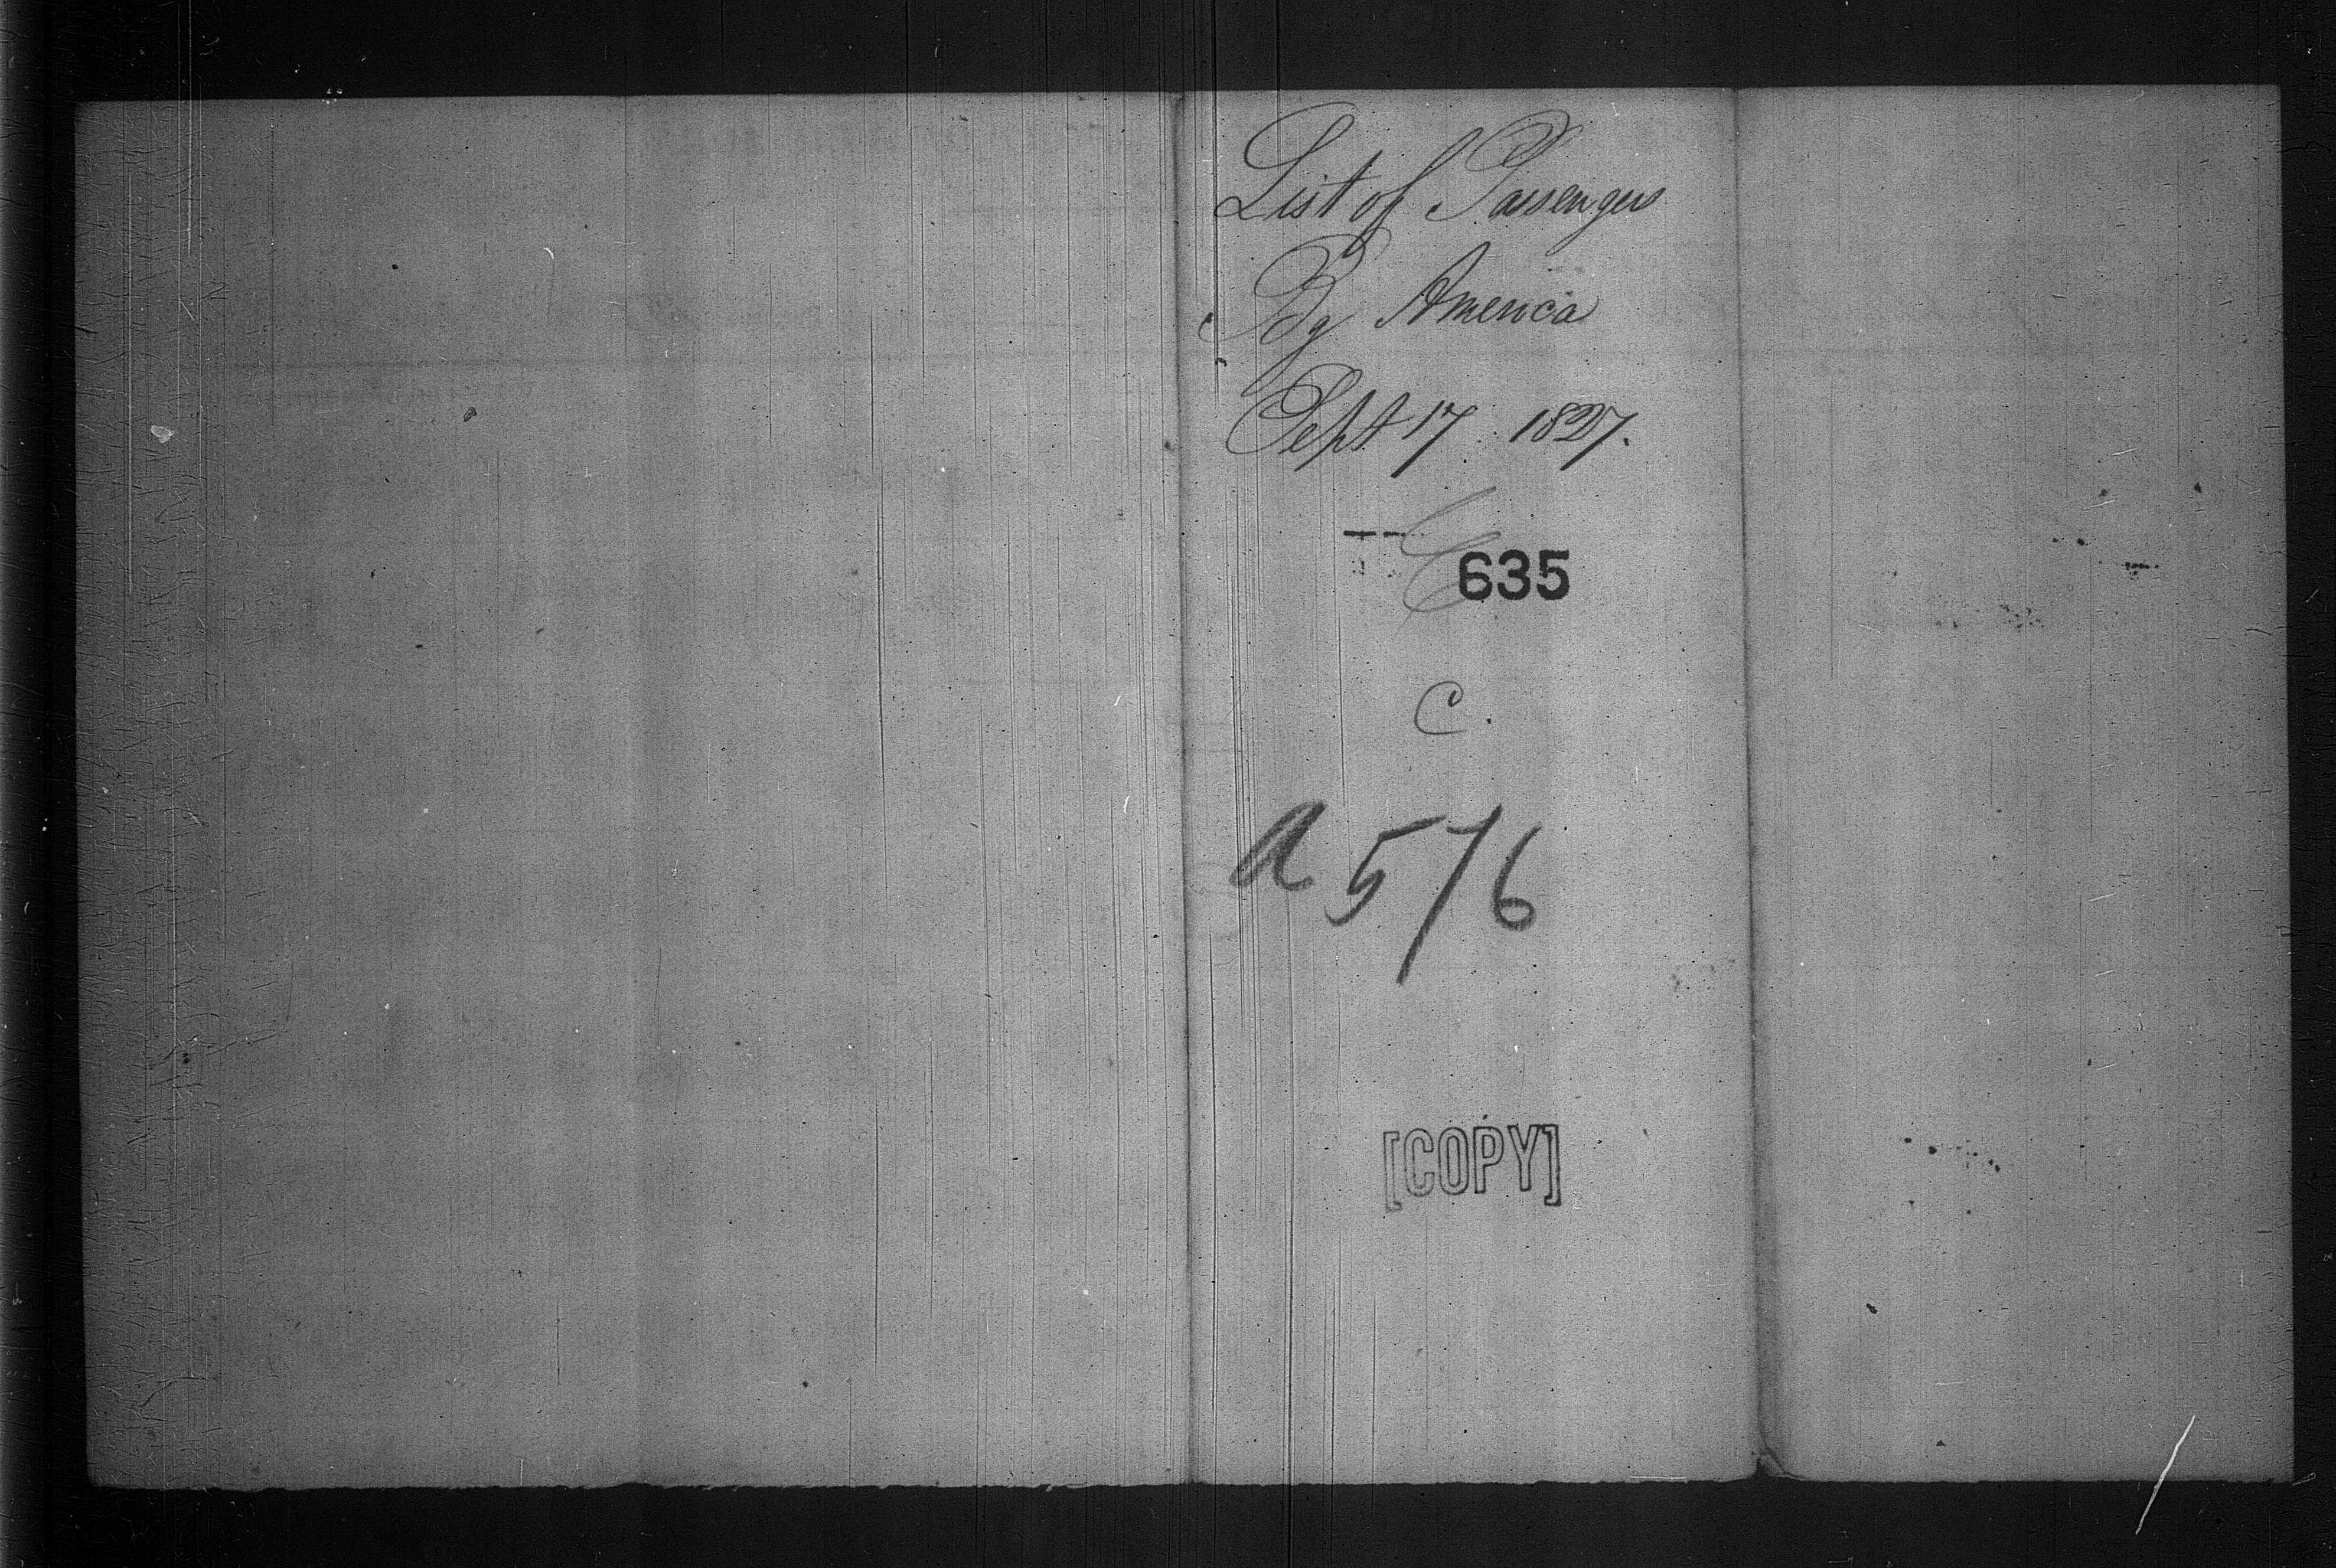 List of Passengers
Bg America
Sept 17 1827.
635
C.
a 576
[COPY]